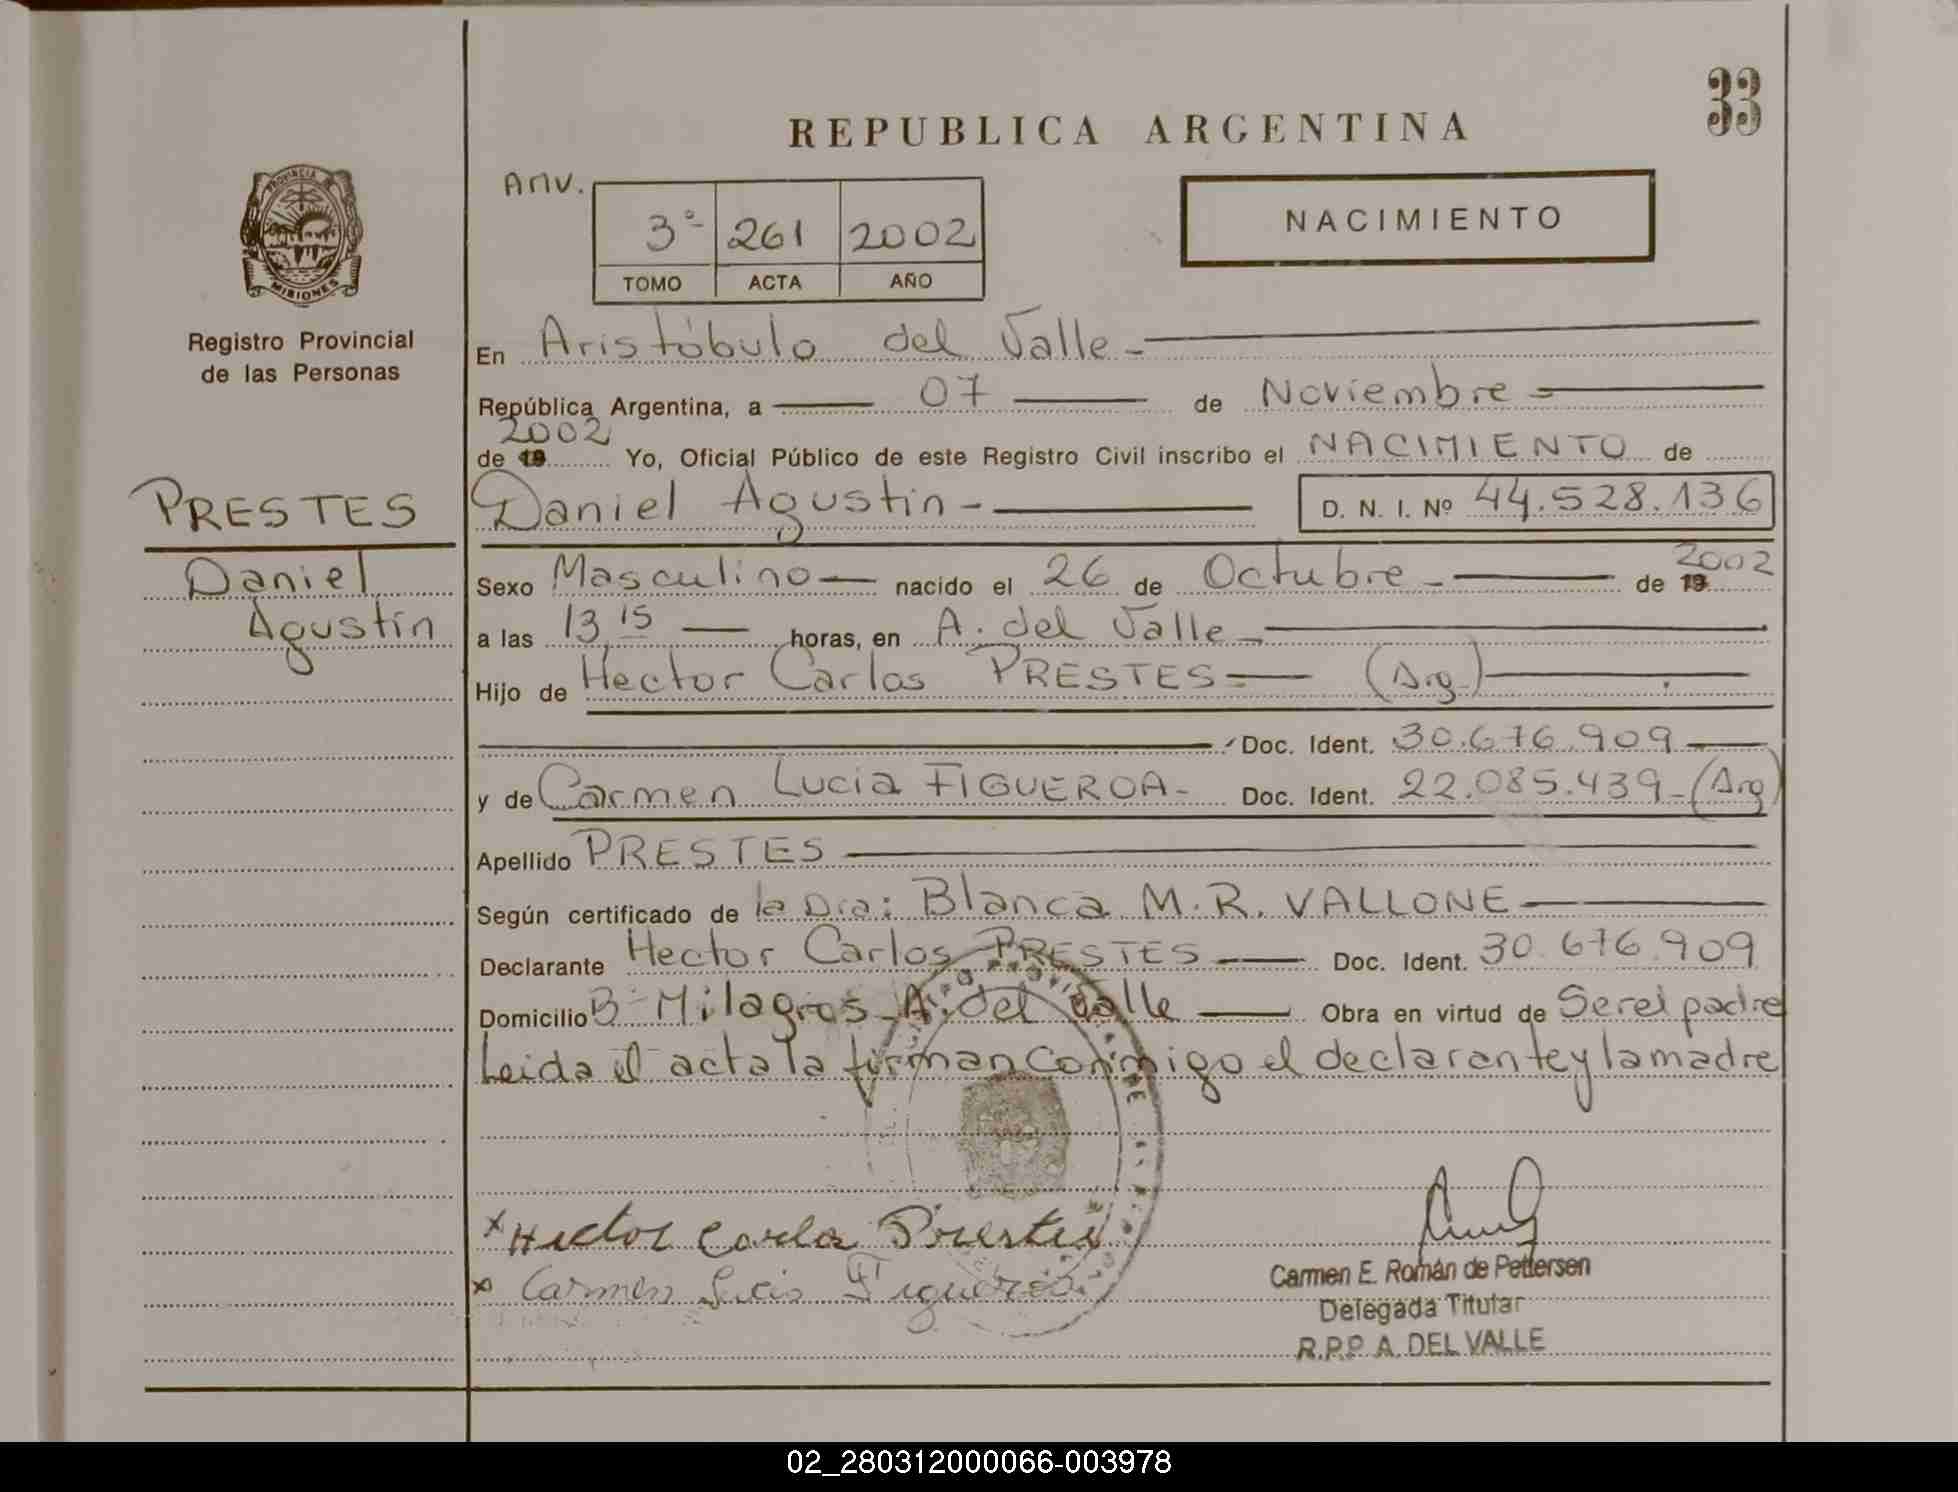 33
REPUBLICA ARGENTINA
Anv.
3º 261 2002
TOMO ACTA AÑO
NACIMIENTO
PROVINCIA
MISIONES
Registro Provincial
de las Personas
PRESTES
Daniel
Agustín
En Aristóbulo del Valle
República Argentina, a 07 de Noviembre
2002
de 19 Yo, Oficial Público de este Registro Civil inscribo el NACIMIENTO de
Daniel Agustin D. N. I. Nº 44.528.136
Sexo Masculino nacido el 26 de Octubre de 19 2002
a las 13,15 horas, en A. del Valle
Hijo de Hector Carlos PRESTES (Arg.)
Doc. Ident. 30.676.909
y de Carmen Lucia FIGUEROA Doc. Ident. 22.085.439 (Arg)
Apellido PRESTES
Según certificado de la Dra: Blanca M. R. VALLONE
Declarante Hector Carlos PRESTES Doc. Ident. 30.676.909
Domicilio Bº Milagros A. del Valle Obra en virtud de Ser el padre
Leida el acta la firman conmigo el declarante y la madre
x Hector Carlos Prestes
x Carmen Lucia Figueroa
Carmen E. Román de Pettersen
Delegada Titular
R.P.P. A. DEL VALLE
02_280312000066-003978